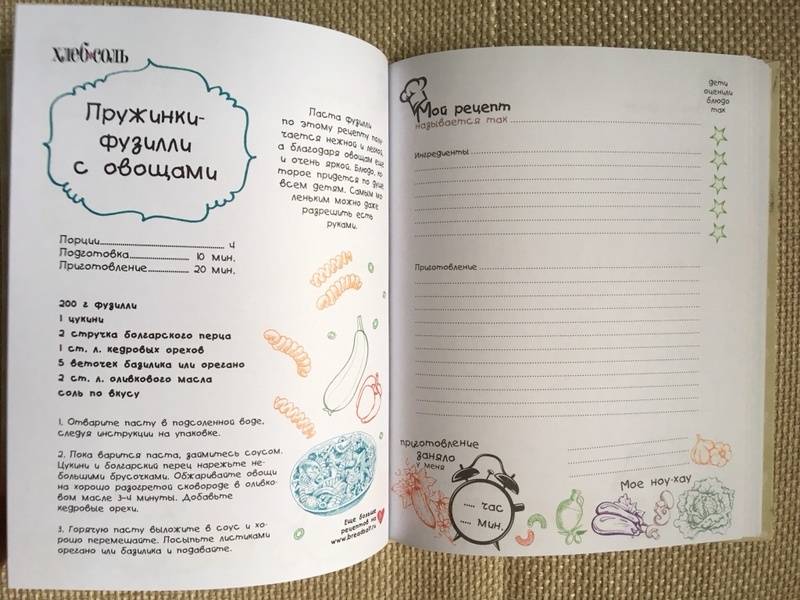 хлеб•соль
Пружинки-
фузилли
с овощами
Паста фузилли
по этому рецепту полу-
чается нежной и легкой,
а благодаря овощам еще
и очень яркой. Блюдо, ко-
торое придется по душе
всем детям. Самым ма-
леньким можно даже
разрешить есть
руками.
Порции 4
Подготовка 10 мин.
Приготовление 20 мин.
200 г фузилли
1 цукини
2 стручка болгарского перца
1 ст. л. кедровых орехов
5 веточек базилика или орегано
2 ст. л. оливкового масла
соль по вкусу
1. Отварите пасту в подсоленной воде,
следуя инструкции на упаковке.
2. Пока варится паста, займитесь соусом.
Цукини и болгарский перец нарежьте не-
большими брусочками. Обжаривайте овощи
на хорошо разогретой сковороде в оливко-
вом масле 3-4 минуты. Добавьте
кедровые орехи.
3. Горячую пасту выложите в соус и хо-
рошо перемешайте. Посыпьте листиками
орегано или базилика и подавайте.
Еще больше
рецептов на
www.breadsalt.ru
Мой рецепт
называется так
дети
оценили
блюдо
так
Ингредиенты
Приготовление
приготовление
заняло
у меня
час
мин.
Мое ноу-хау